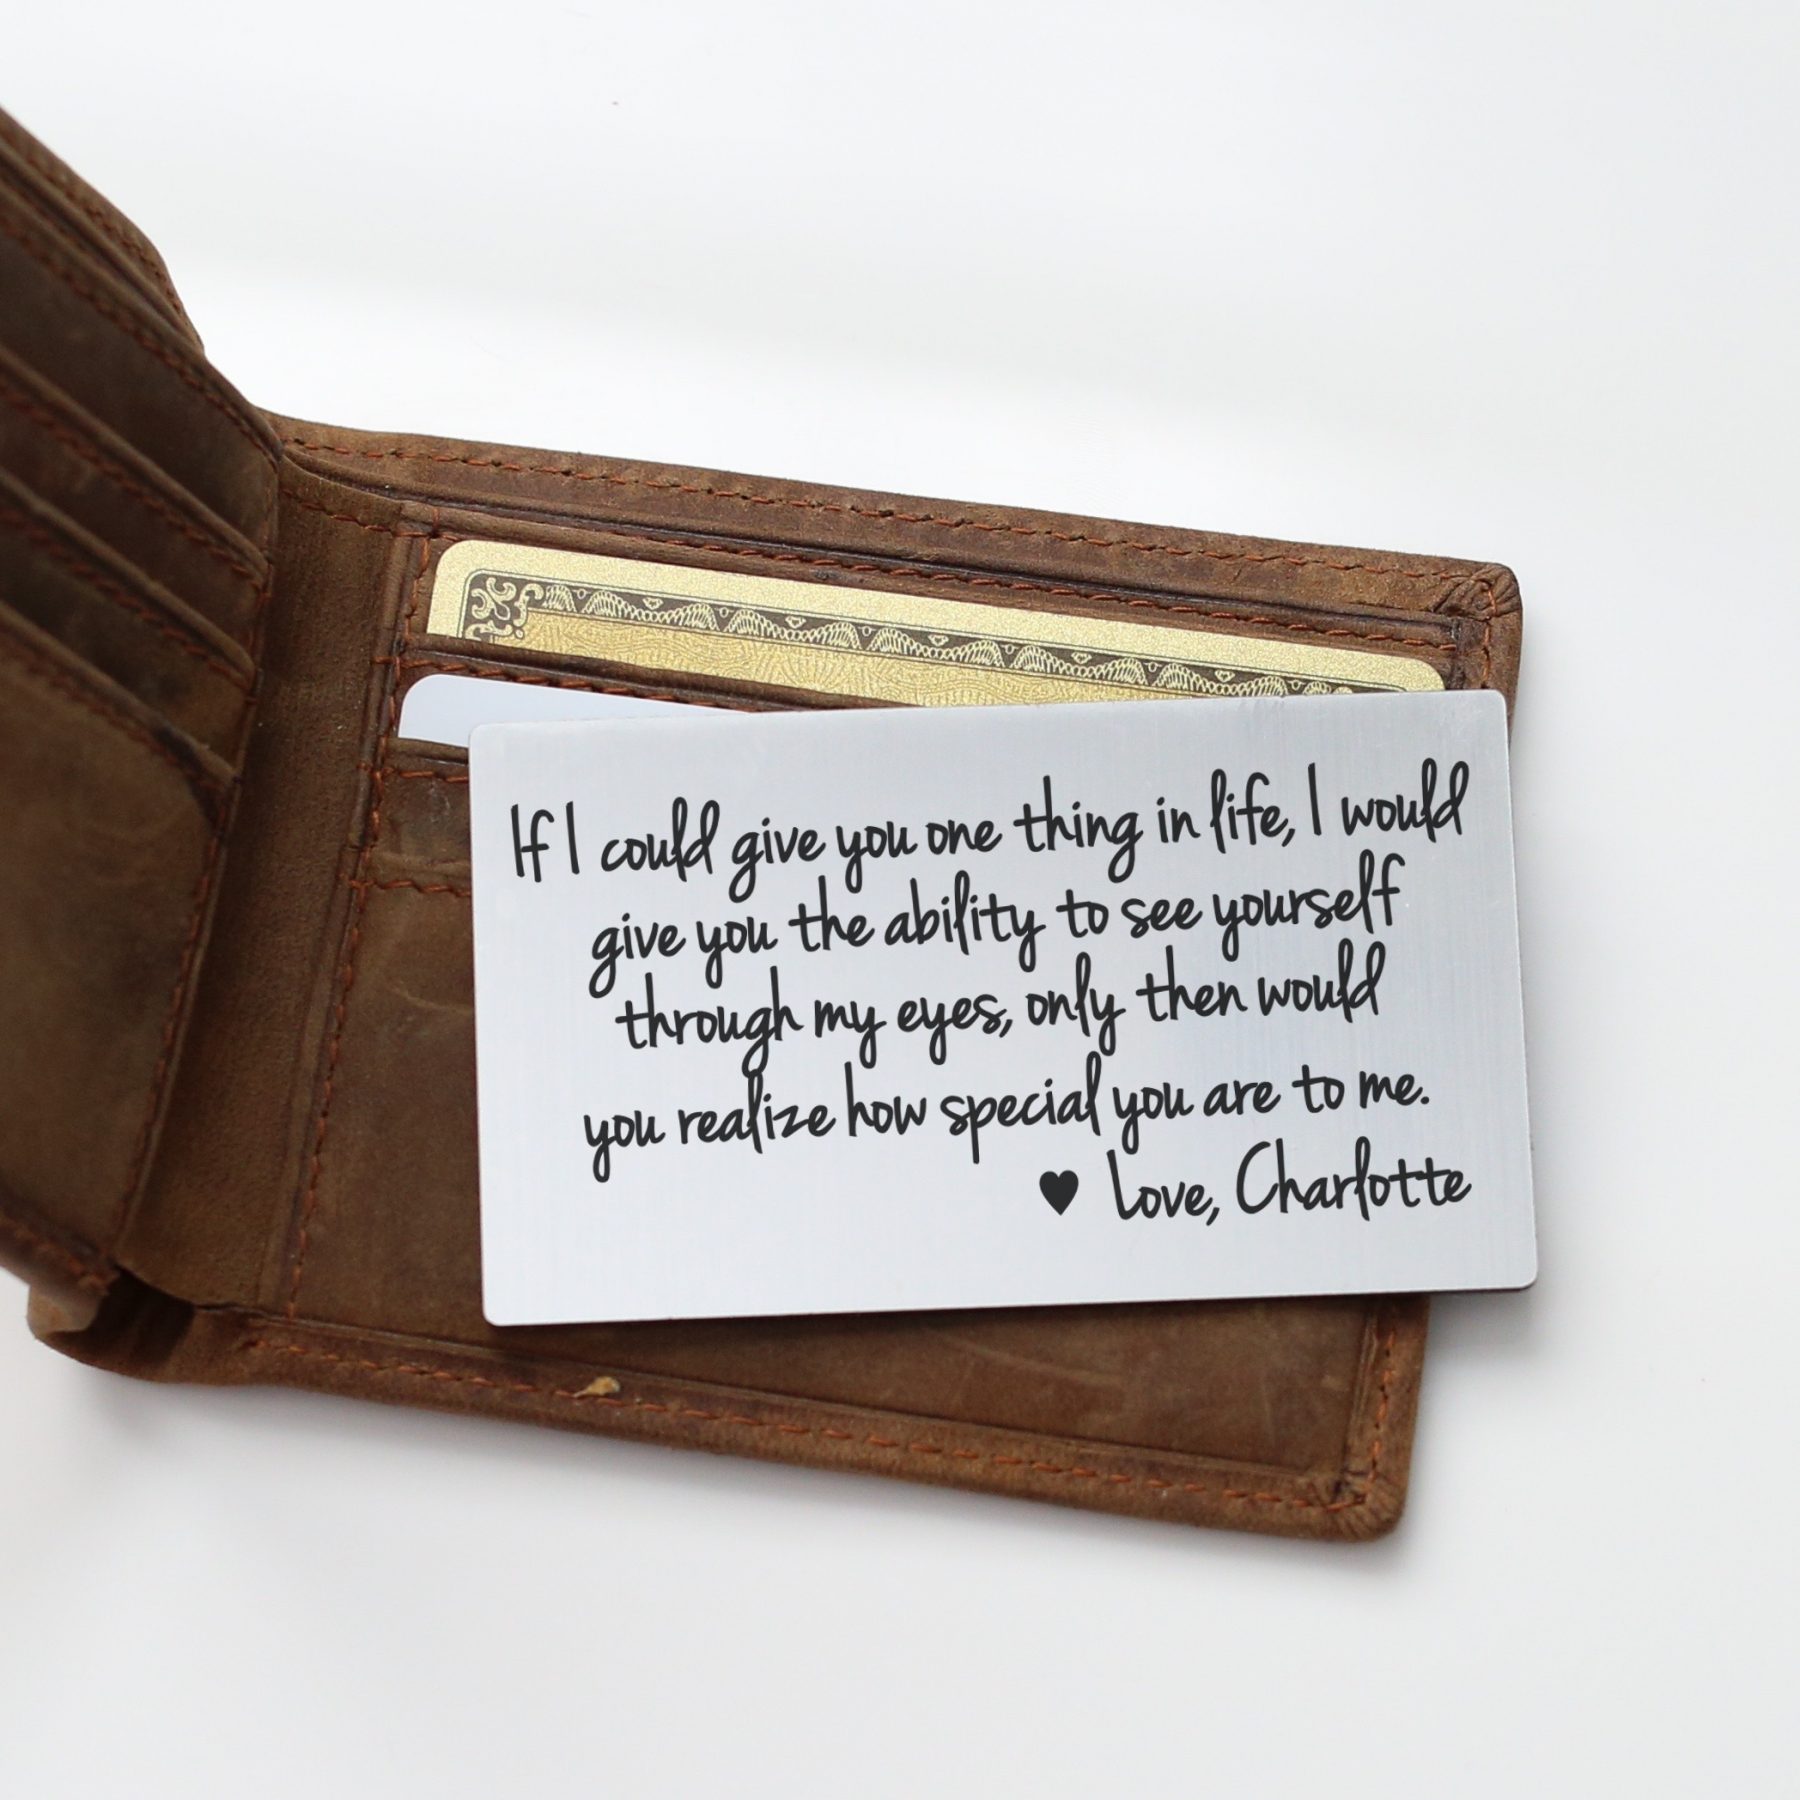 If I could give you one thing in life, I would
give you the ability to see yourself
through my eyes, only then would
you realize how special you are to me.
♥ Love, Charlotte